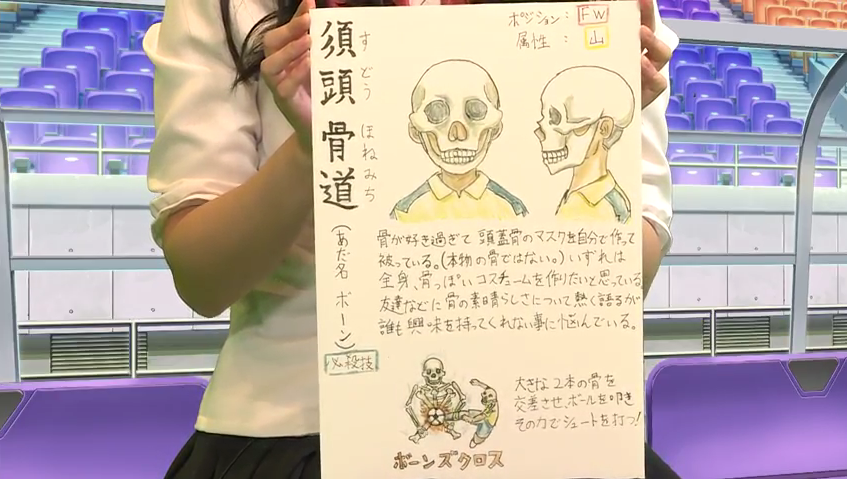 ポジション：FW
属性：山
須頭 骨道
すどう ほねみち
(あだ名 ボーン)
骨が好き過ぎて頭蓋骨のマスクを自分で作って
被っている。(本物の骨ではない。)いずれは
全身、骨っぽいコスチュームを作りたいと思っている。
友達などに骨の素晴らしさについて熱く語るが
誰も興味を持ってくれない事に悩んでいる。
必殺技
大きな2本の骨を
交差させ、ボールを叩き
その力でシュートを打つ!
ボーンズクロス